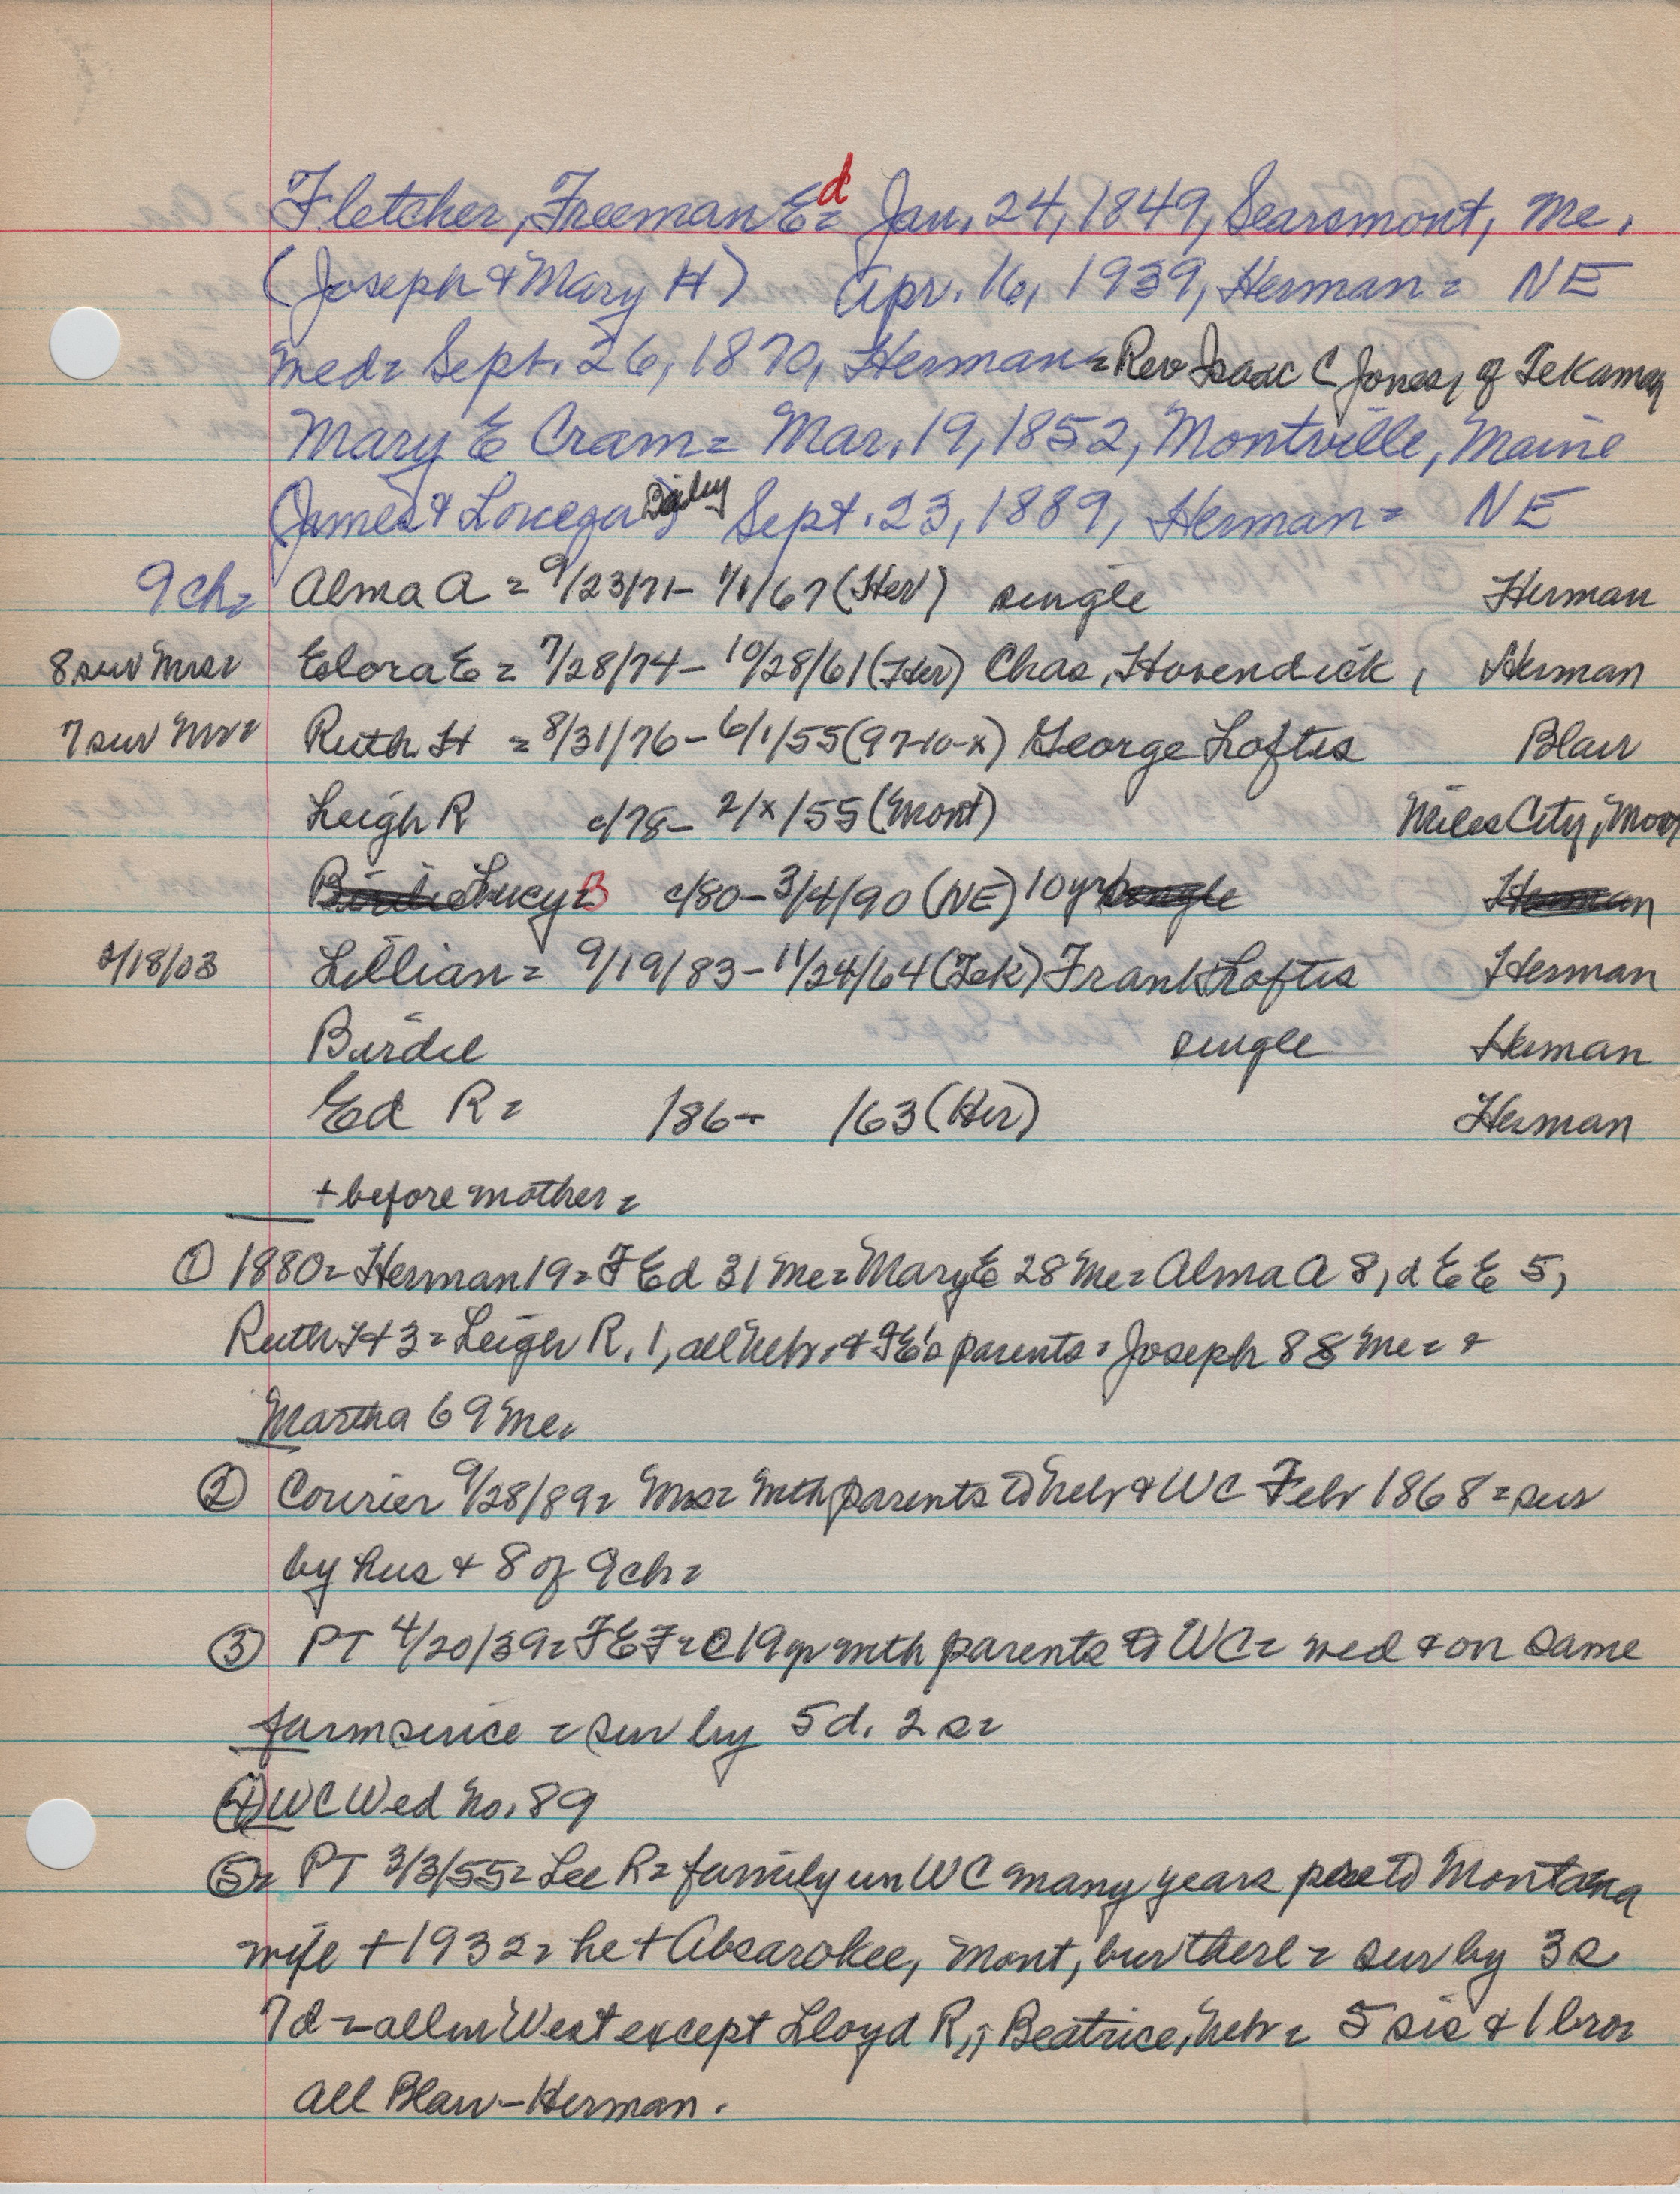 Fletcher, Freeman Ed = Jan. 24, 1849, Searsmont, Me.
(Joseph & Mary H) Apr. 16, 1939, Herman = NE
wed = Sept. 26, 1870, Herman = Rev Isaac C Jones, of Tekamah
Mary E Cram = Mar. 19, 1852, Montville, Maine
(James & Sept. 23, 1889, Herman = NE
9 ch = Alma A = 9/23/71 - 1/1/67 (Her) single Herman
8 sur Mrs = Elora E = 7/28/74 - 10/28/61 (Her) Chas. Hovendick, Herman
7 sur Mr = Ruth H = 8/31/76 - 6/1/55 (97-10-x) George Loftis Blair
Leigh R c/78 - 2/x/55 (Mont) Miles City, Mon
Birdie Lucy = B c/80 - 3/4/90 (NE) 10 yr single Herman
2/18/03 Lillian = 9/19/83 - 11/24/64 (Tek) Frank Loftis Herman
Birdie single Herman
Ed R = /86 - /63 (Her) Herman
+ before mother =
① 1880 = Herman 19 = F Ed 31 Me = Mary E 28 Me = Alma A 8, d E E 5,
Ruth H 3 = Leigh R. 1, all Nebr. & FE's parents = Joseph 88 Me = &
Martha 69 Me.
② Courier 9/28/89 = Mrs = with parents to Nebr & WC Febr 1868 = sur
by hus & 8 of 9 ch =
③ PT 4/20/39 = FEF = @ 19 yr with parents to WC = wed & on same
farm since = sur by 5 d. 2 s =
④ WC Wed No. 89
⑤ = PT 3/3/55 = Lee R = family in WC many years to Montana
wife + 1932 = he + Absarokee, Mont, bur there = sur by 3 s
7 d = all in West except Lloyd R., Beatrice, Nebr = 5 sis & 1 bro =
all Blair - Herman.